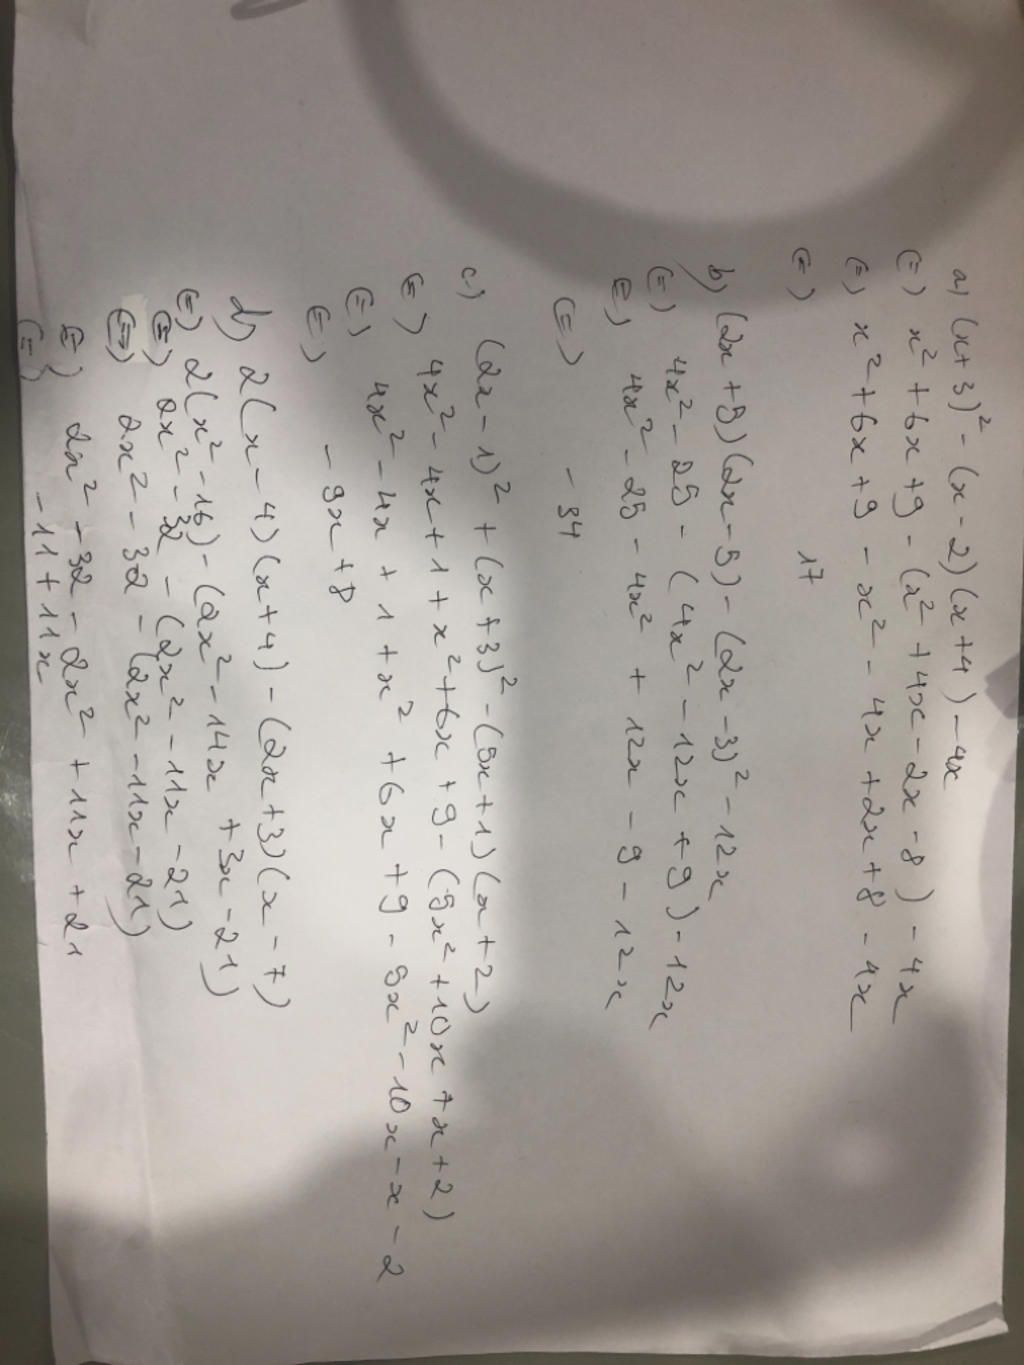 a) (x+3)² - (x-2)(x+4) - 4x
(=) x² + 6x + 9 - (x² + 4x - 2x - 8) - 4x
(=) x² + 6x + 9 - x² - 4x + 2x + 8 - 4x
(=) 17
b) (2x+5)(2x-5) - (2x-3)² - 12x
(=) 4x² - 25 - (4x² - 12x + 9) - 12x
(=) 4x² - 25 - 4x² + 12x - 9 - 12x
(=) - 34
c) (2x-1)² + (x+3)² - (5x+1)(x+2)
(=) 4x² - 4x + 1 + x² + 6x + 9 - (5x² + 10x + x + 2)
(=) 4x² - 4x + 1 + x² + 6x + 9 - 5x² - 10x - x - 2
(=) - 9x + 8
d) 2(x-4)(x+4) - (2x+3)(x-7)
(=) 2(x² - 16) - (2x² - 14x + 3x - 21)
(=) 2x² - 32 - (2x² - 11x - 21)
(=) 2x² - 32 - (2x² - 11x - 21)
(=) 2x² - 32 - 2x² + 11x + 21
(=) - 11 + 11x